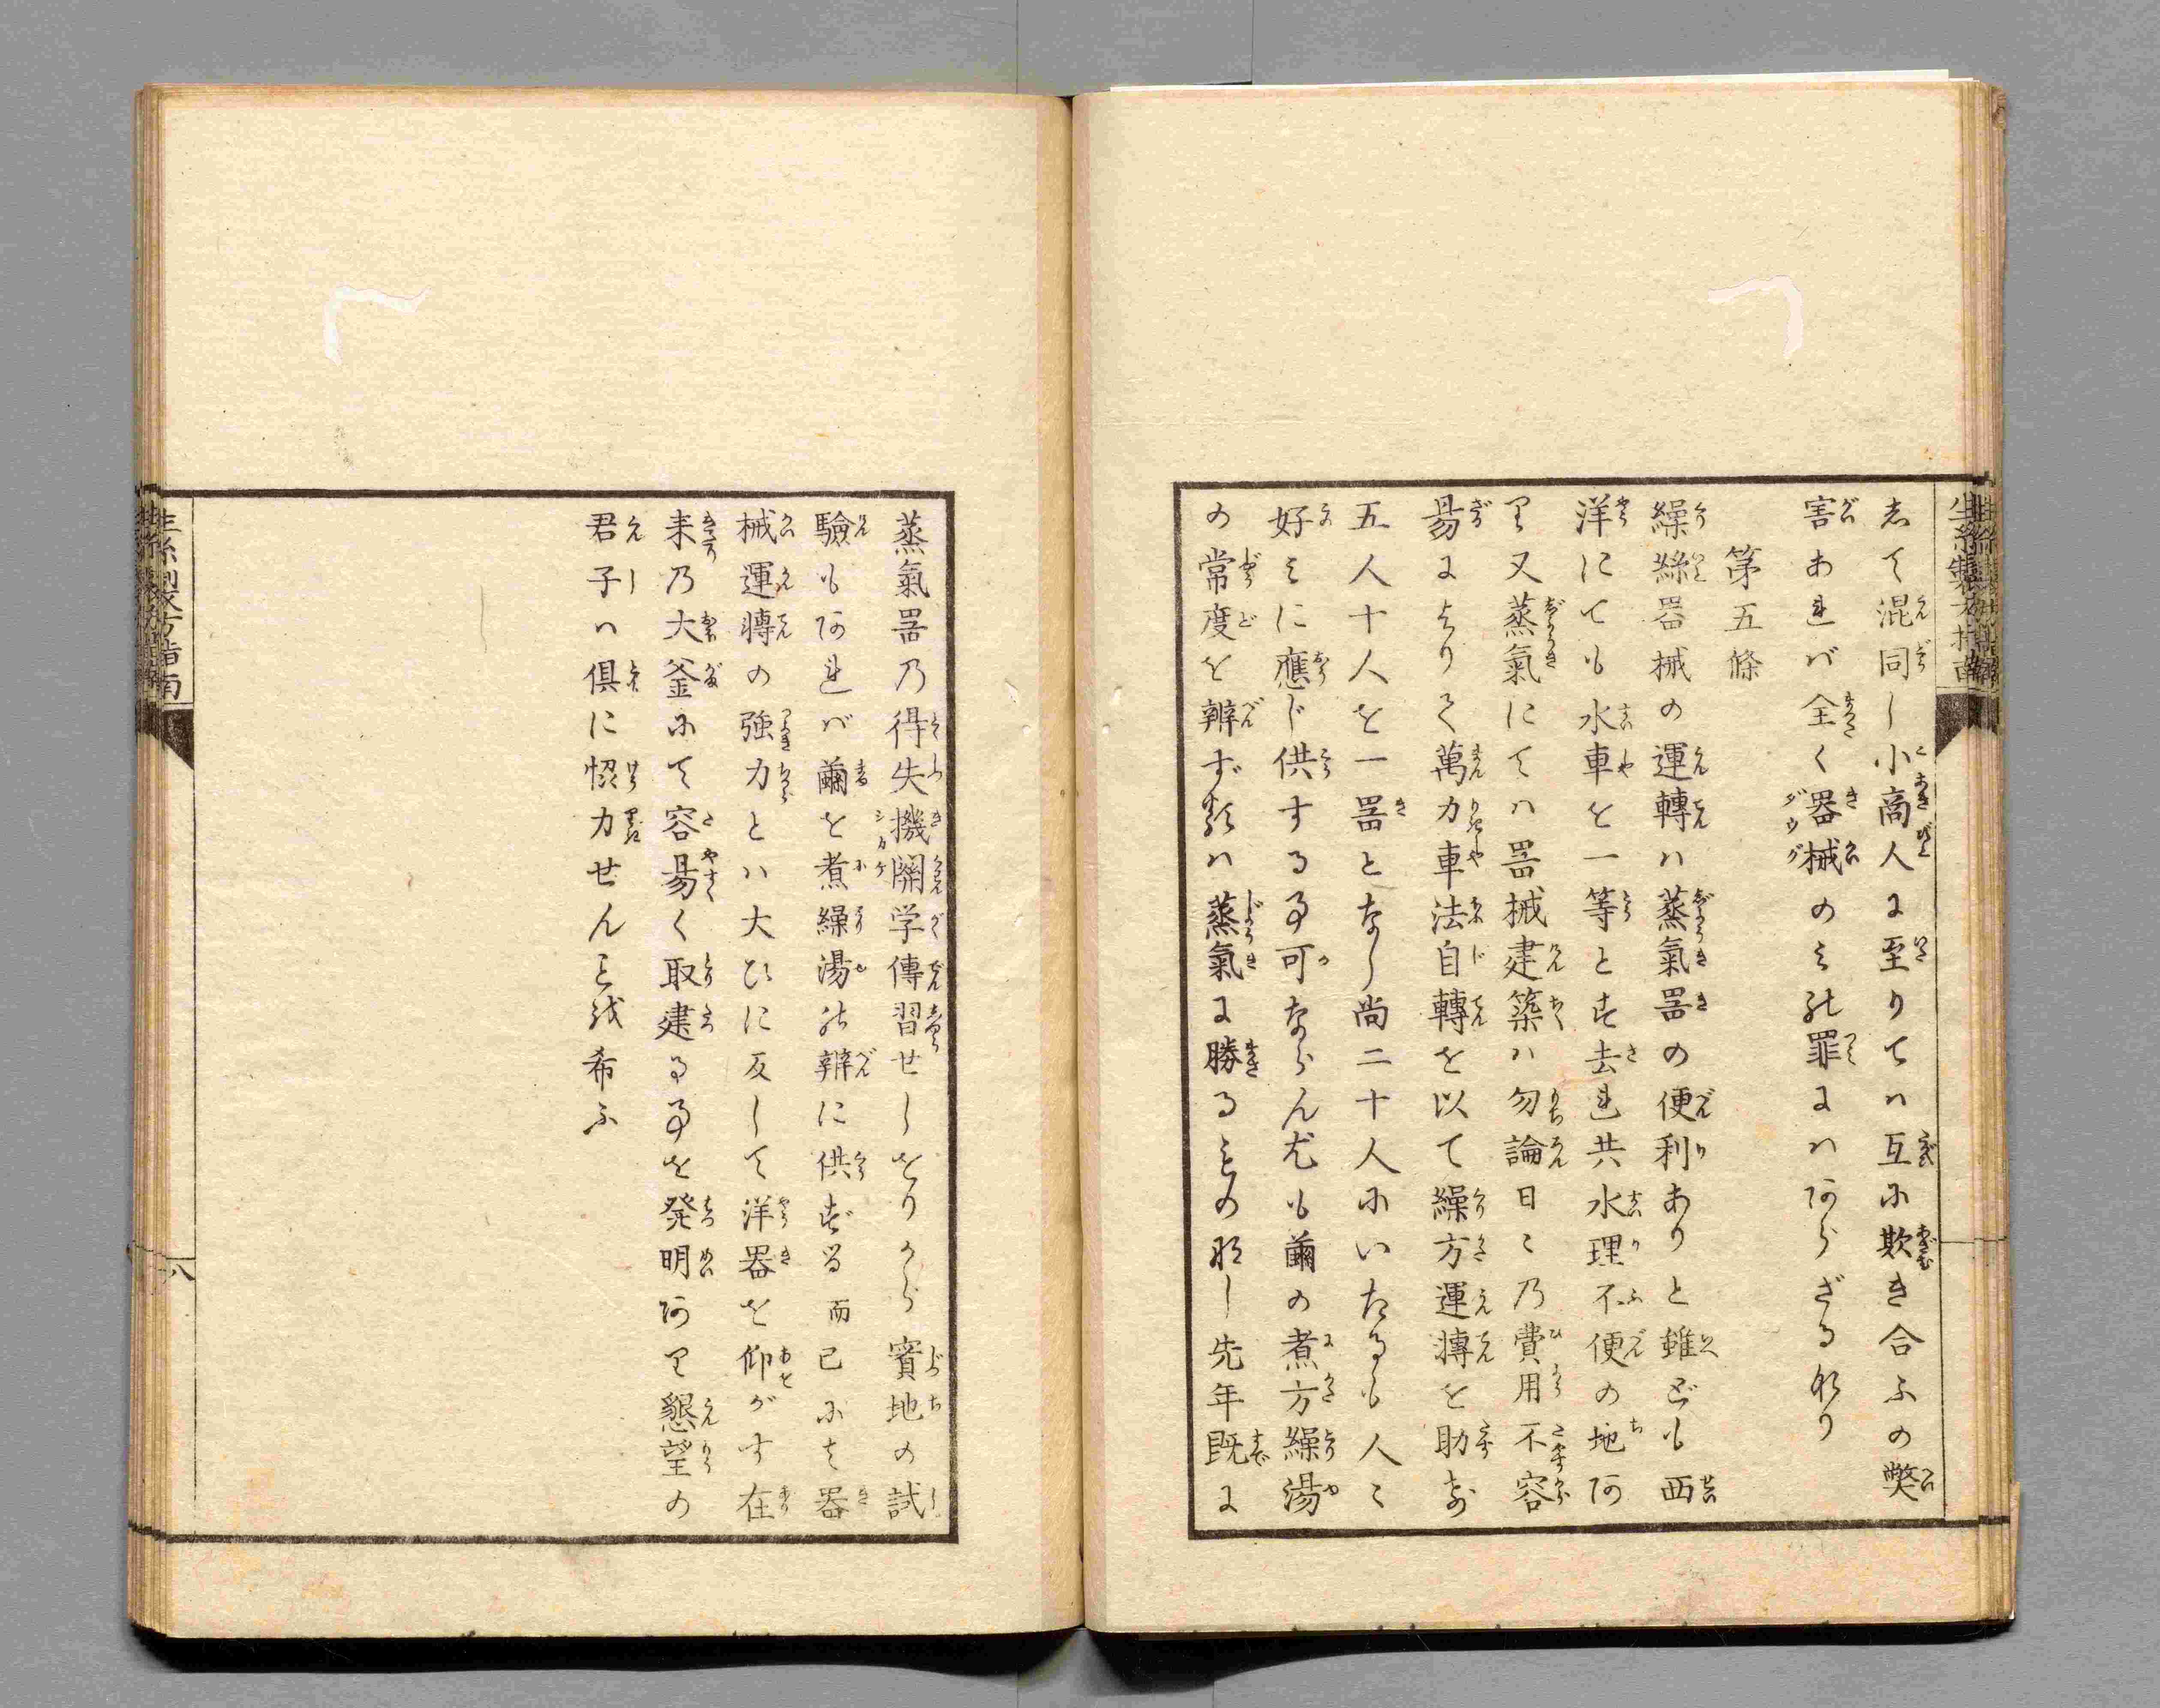 志て混同し小商人に至りては互に欺き合ふの弊
害あれバ全く器械のミの罪にハあらざる也り
第五條
繰絲器械の運轉ハ蒸氣噐の便利ありと雖ども西
洋にても水車を一等とす去れ共水理不便の地あ
り又蒸氣にてハ噐械建築ハ勿論日々乃費用不容
易によりて萬力車法自轉を以て繰方運轉を助け
五人十人を一噐となし尚二十人にいたるも人々
好ミに應じ供する事可ならん尤も繭の煮方繰湯
の常度を辨ず類ハ蒸氣に勝るもの那し先年既に
蒸氣噐乃得失機関学傳習せしをりから實地の試
驗もあれバ繭を煮繰湯の辨に供する而已にて器
械運轉の強力とハ大ひに反して洋器を仰がす在
来乃大釜にて容易く取建る事を発明あり懇望の
君子ハ倶に惚力せんことを希ふ
生糸製方指南
八